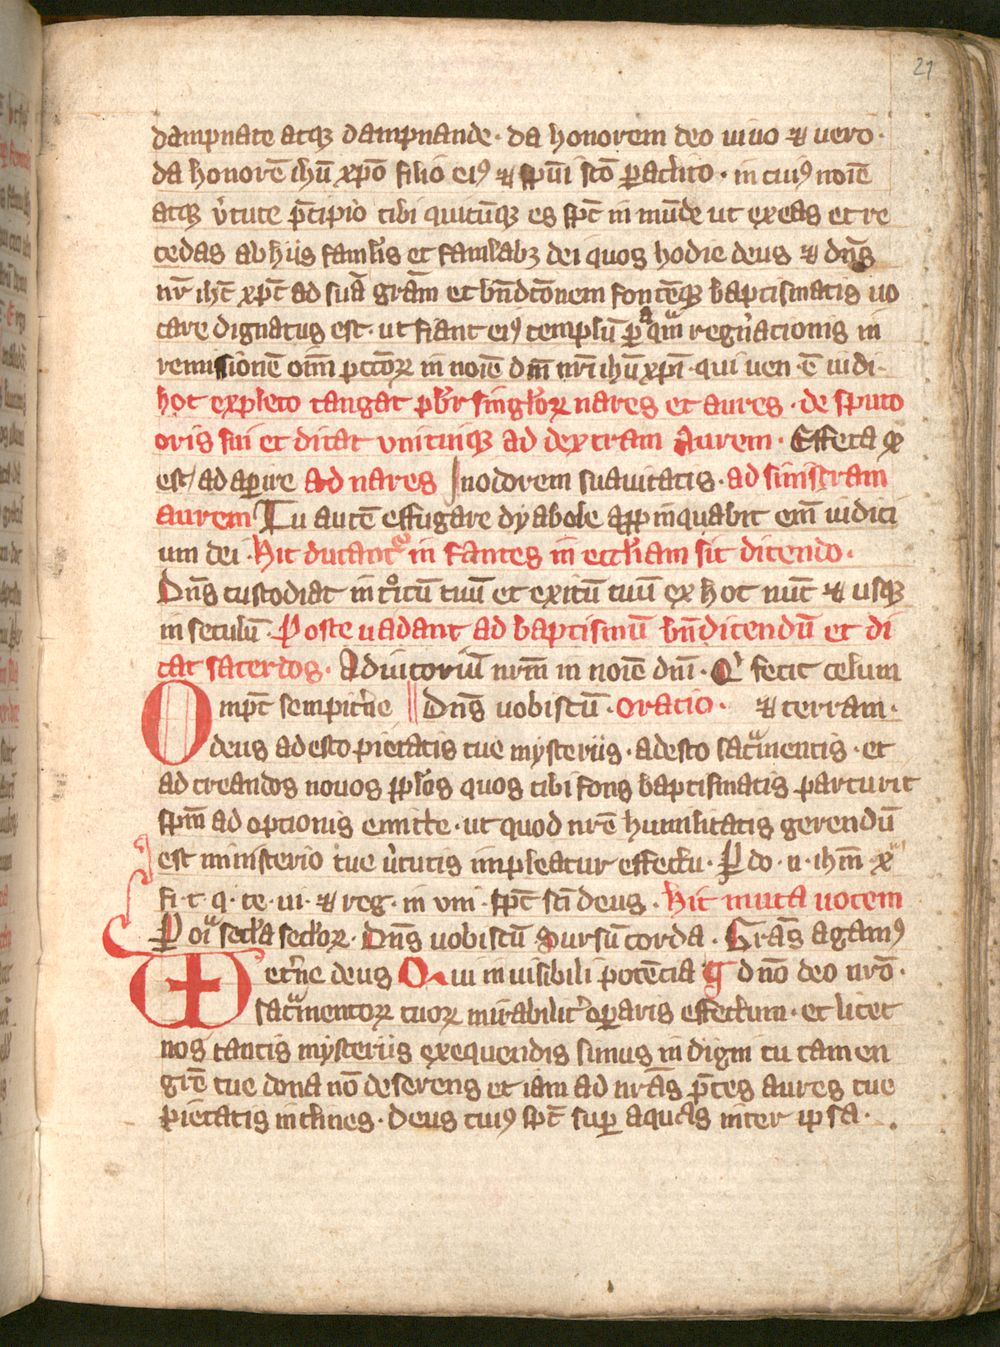 21
dampnate atqꝫ dampnande · da honorem deo uiuo ⁊ uero ·
da honorē ihū xp̄o filio eiꝰ ⁊ sp̄ui sc̄o ꝑaclito · in cuiꝰ noīe
atqꝫ v̓tute p̄cipio tibi quicūqꝫ es sp̄c in mūde ut exeas et re
cedas ab hijs famłis et famłabꝫ dei quos hodie deus ⁊ dn̄s
nr̄ ihc̄ xp̄c ad suā grām et bn̄dcōnem fontēqꝫ baptismatis uo
care dignatus est · ut fiant eiꝰ templū ꝑ aquā regn̓acionis in
remissionē oīm pctōꝝ in noīe dn̄i nr̄i ihū xp̄i · qui uen · ē iudi ·
hoc expleto tangat pb̓r singl̓oꝝ nares et aures · de sputo
oris sui et dicat vnicuiqꝫ ad dextram aurem · Effeta qͩ
est / ad aꝑire ad nares Jnodorem suauitatis · ad sinistram
aurem Tu autē effugare dyabole aꝓpinquabit em̄ iudici
um dei · hic ducantͬ in fantes in eccl̓iam sic dicendo ·
Dn̄s custodiat introitū tuū et exitū tuū ex hoc nūc ⁊ usqꝫ
in seculū · Poste uadant ad baptismū bn̄dicendū et di
cat sacerdos · Adiutoriū nrm̄ in noīe dn̄i · Qͥ fecit celum
Omp̄c sempit̓ne Dn̄s uobiscū · oracio · ⁊ terram ·
deus adesto pietatis tue mysterijs · adesto sacͣmentis · et
ad creandos nouos ppl̓os quos tibi fons baptismatis parturit
sp̄m ad optionis emitte · ut quod nr̄e humilitatis gerendū
est ministerio tue v̓tutis impleatur effectu · P do · n · ihm̄ x
fi · t · q · te · ui · ⁊ reg · in vni · sp̄c sc̄i deus · hic muta uocem
P oīa secl̓a secl̓oꝝ · Dn̄s uobiscū Sursū corda · Grās agamꝰ
et̓ne deus Qui in uisibili potēcia dn̄o deo nrō ·
sacͣmentoꝝ tuoꝝ mirabilit̓ oꝑaris effectum · et licet
nos tantis mysterijs exequendis simus in digni tu tamen
gr̄e tue dona nō deserens et iam ad nrās p̄ces aures tue
pietatis inclines · Deus cuiꝰ sp̄c suꝑ aquas inter ipsa ·